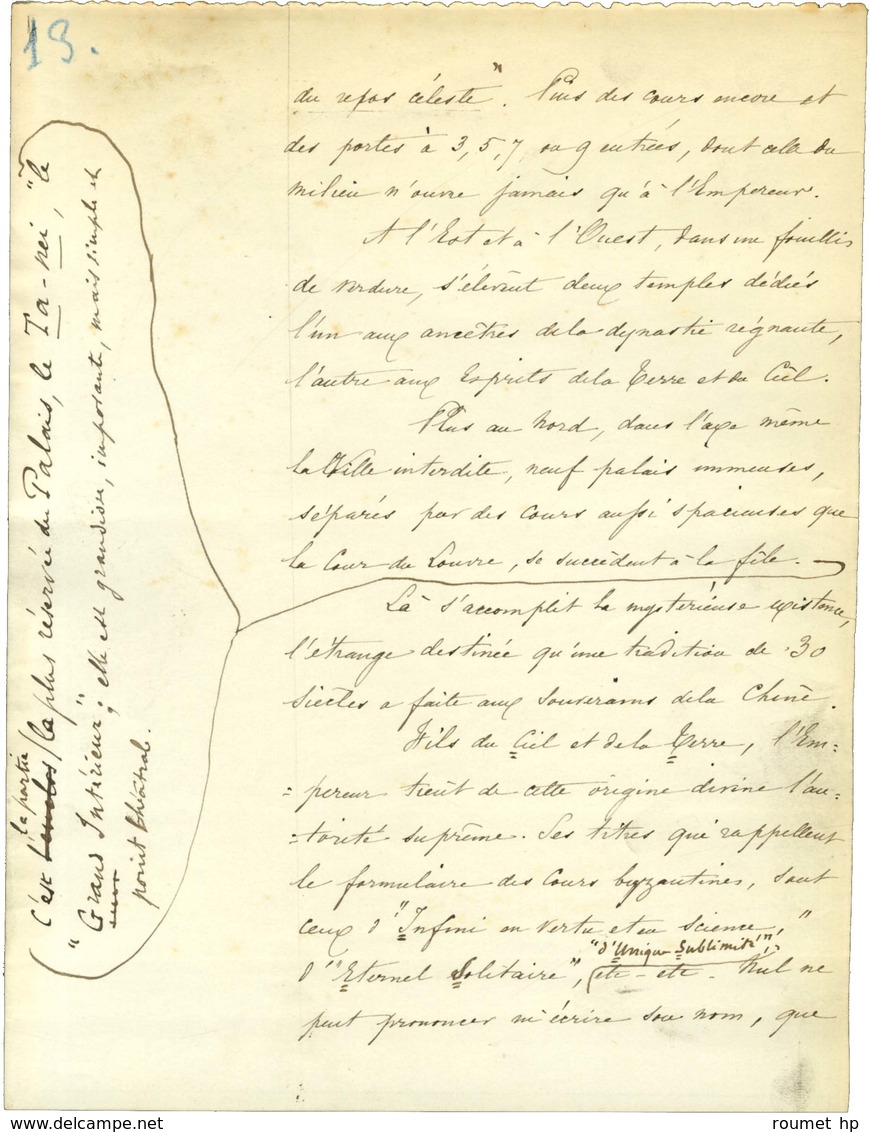 19.
du repos céleste". Puis des cours encore et
des portes à 3, 5, 7 ou 9 entrées, dont celle du
milieu n'ouvre jamais qu'à l'Empereur.
A l'Est et à l'Ouest, dans un fouillis
de verdure, s'élèvent deux temples dédiés
l'un aux ancêtres de la dynastie régnante,
l'autre aux Esprits de la Terre et du Ciel.
Plus au Nord, dans l'axe même
la Ville interdite, neuf palais immenses,
séparés par des cours aussi spacieuses que
la Cour du Louvre, se succèdent à la file.
Là s'accomplit la mystérieuse existence,
l'étrange destinée qu'une tradition de 30
siècles a faite aux souverains de la Chine.
Fils du Ciel et de la Terre, l'Em-
=pereur tient de cette origine divine l'au-
=torité suprême. Ses titres qui rappellent
le formulaire des Cours byzantines, sont
ceux d'"Infini en vertu et en science,"
"d'Unique Sublimité",
d'"Eternel Solitaire", etc - etc - Nul ne
peut prononcer ni écrire son nom, que
la partie
C'est l'enclos la plus réservée du Palais, le Ta-nei, "le
"Grand Intérieur"; elle est grandiose, imposante, mais simple et
point théâtral.
roumet hp